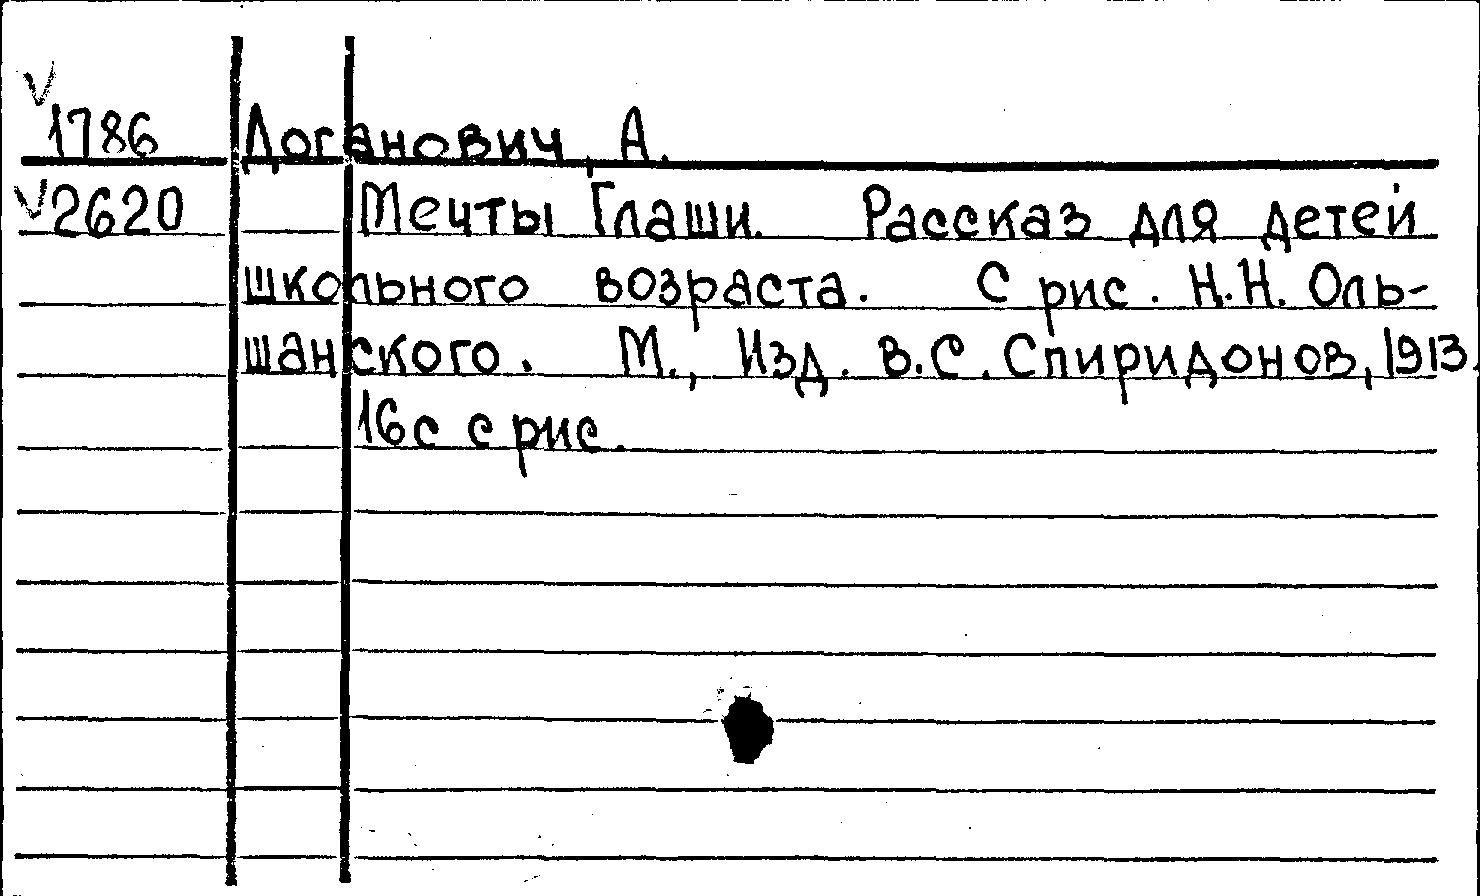 V
1786 Доганович, А.
V2620 Мечты Глаши. Рассказ для детей
школьного возраста. С рис. Н.Н. Оль-
шанского. М., Изд. В.С. Спиридонов, 1913.
16с с рис.